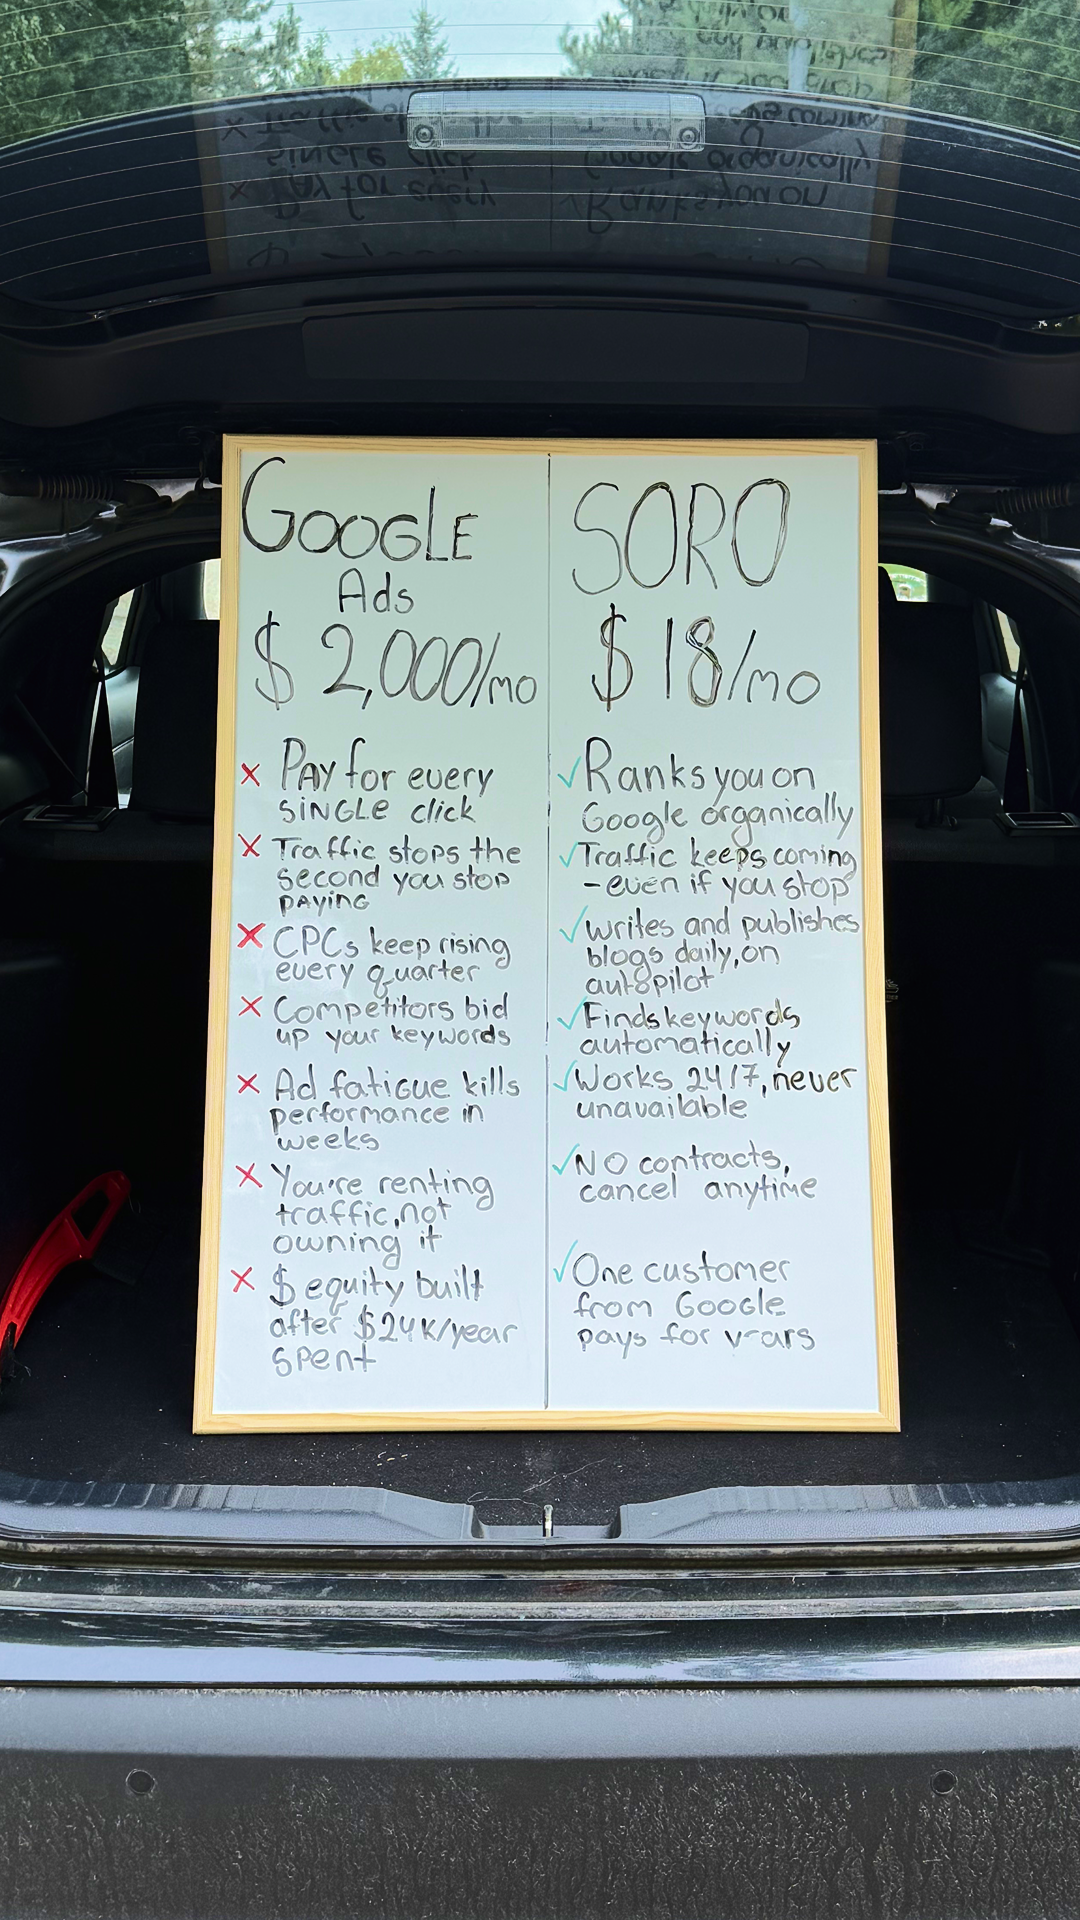 GOOGLE
Ads
$ 2,000/mo
× PAY for every
SINGLE click
× Traffic stops the
second you stop
PAYING
× CPCs keep rising
every quarter
× Competitors bid
up your keywords
× Ad fatigue kills
performance in
weeks
× You're renting
traffic, not
owning it
× $ equity built
after $24K/year
spent
SORO
$ 18/mo
✓ Ranks you on
Google organically
✓ Traffic keeps coming
- even if you stop
✓ Writes and publishes
blogs daily, on
autopilot
✓ Finds keywords
automatically
✓ Works 24/7, never
unavailable
✓ NO contracts,
cancel anytime
✓ One customer
from Google
pays for